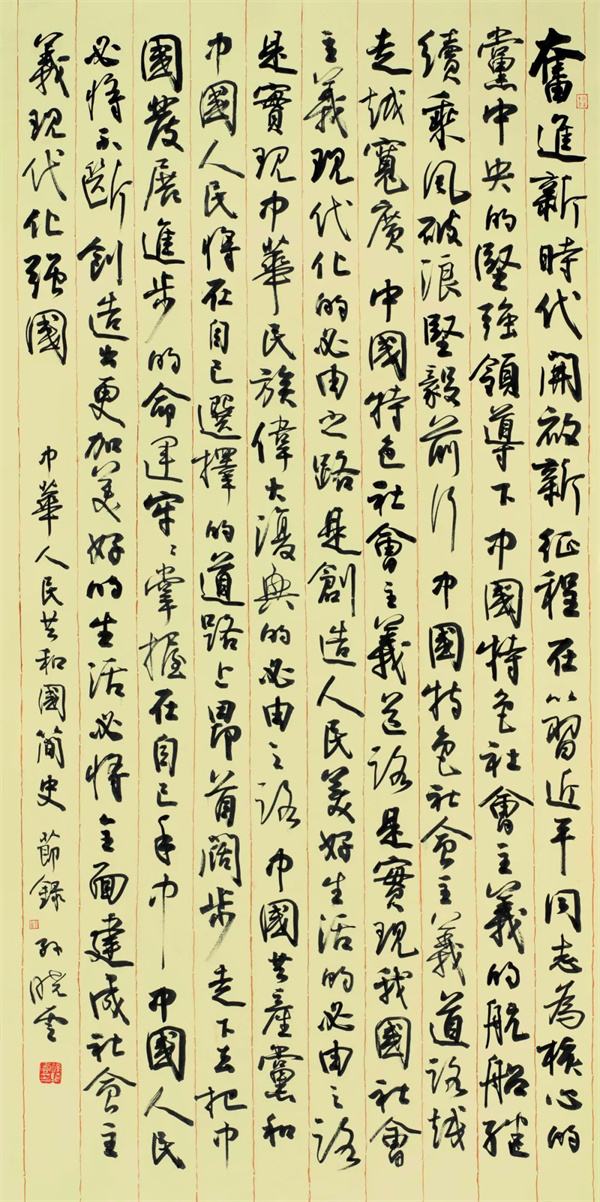 奮進新時代開啟新征程在以習近平同志為核心的
黨中央的堅強領導下中國特色社會主義的航船繼
續乘風破浪堅毅前行中國特色社會主義道路越
走越寬廣中國特色社會主義道路是實現我國社會
主義現代化的必由之路是創造人民美好生活的必由之路
是實現中華民族偉大復興的必由之路中國共產黨和
中國人民將在自己選擇的道路上昂首闊步走下去把中
國發展進步的命運牢牢掌握在自己手中中國人民
必將不斷創造出更加美好的生活必將全面建成社會主
義現代化強國
中華人民共和國簡史節錄孫曉雲